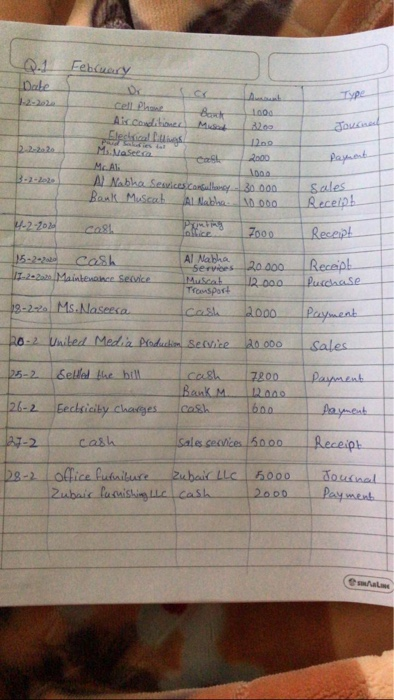 Q.1 February
Date Dr Cr Amount TYPE
1-2-2020 Cell Phone Bank 1000
Air conditioner Muscat 3200 Journal
Electrical fittings 1200
2-2-2020 Ms. Naseera cash 2000 Payment
Mr. Ali 1000
3-2-2020 Al Nabha Services consultancy - 30 000 Sales
Bank Muscat Al Nabha - 10 000 Receipt
4-2-2020 cash Printing office 7000 Receipt
15-2-2020 cash Al Nabha Services 20 000 Receipt
17-2-2020 Maintenance Service Muscat Transport 12 000 Purchase
19-2-20 Ms. Naseera Cash 2000 Payment
20-2 United Media Production Service 20 000 Sales
25-2 Settled the bill cash 7800 Payment
Bank M 12000
26-2 Eectricity charges cash 600 Payment
27-2 cash Sales services 5000 Receipt
28-2 office furniture Zubair LLC 5000 Journal
Zubair furnishing LLC cash 2000 Payment